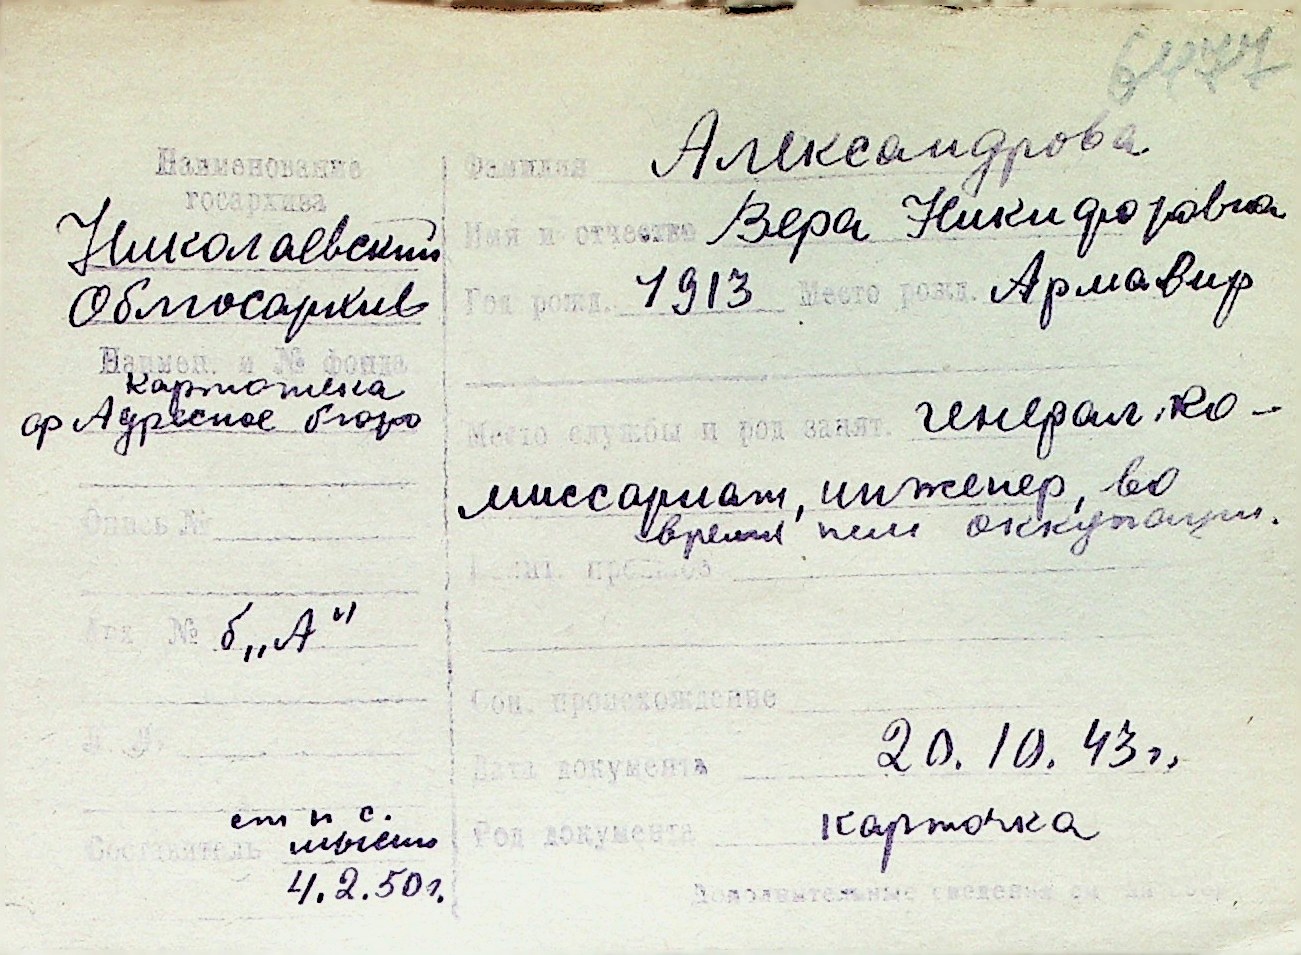 6477
Наименование
госархива
Николаевский
Облгосархив
Наимен. и № фонда
картотека
ф Адресное бюро
Опись №
№ б „А"
Составитель
4.2.50г.
Фамилия Александрова
Имя и отчество Вера Никифоровна
Год рожд. 1913 Место рожд. Армавир
Место службы и род занят. генерал. ко-
миссариат, инженер, во
время нем оккупации.
Полит. прошлое
Соц. происхождение
Дата документа 20.10.43г.
Род документа карточка
Дополнительные сведения см на обор